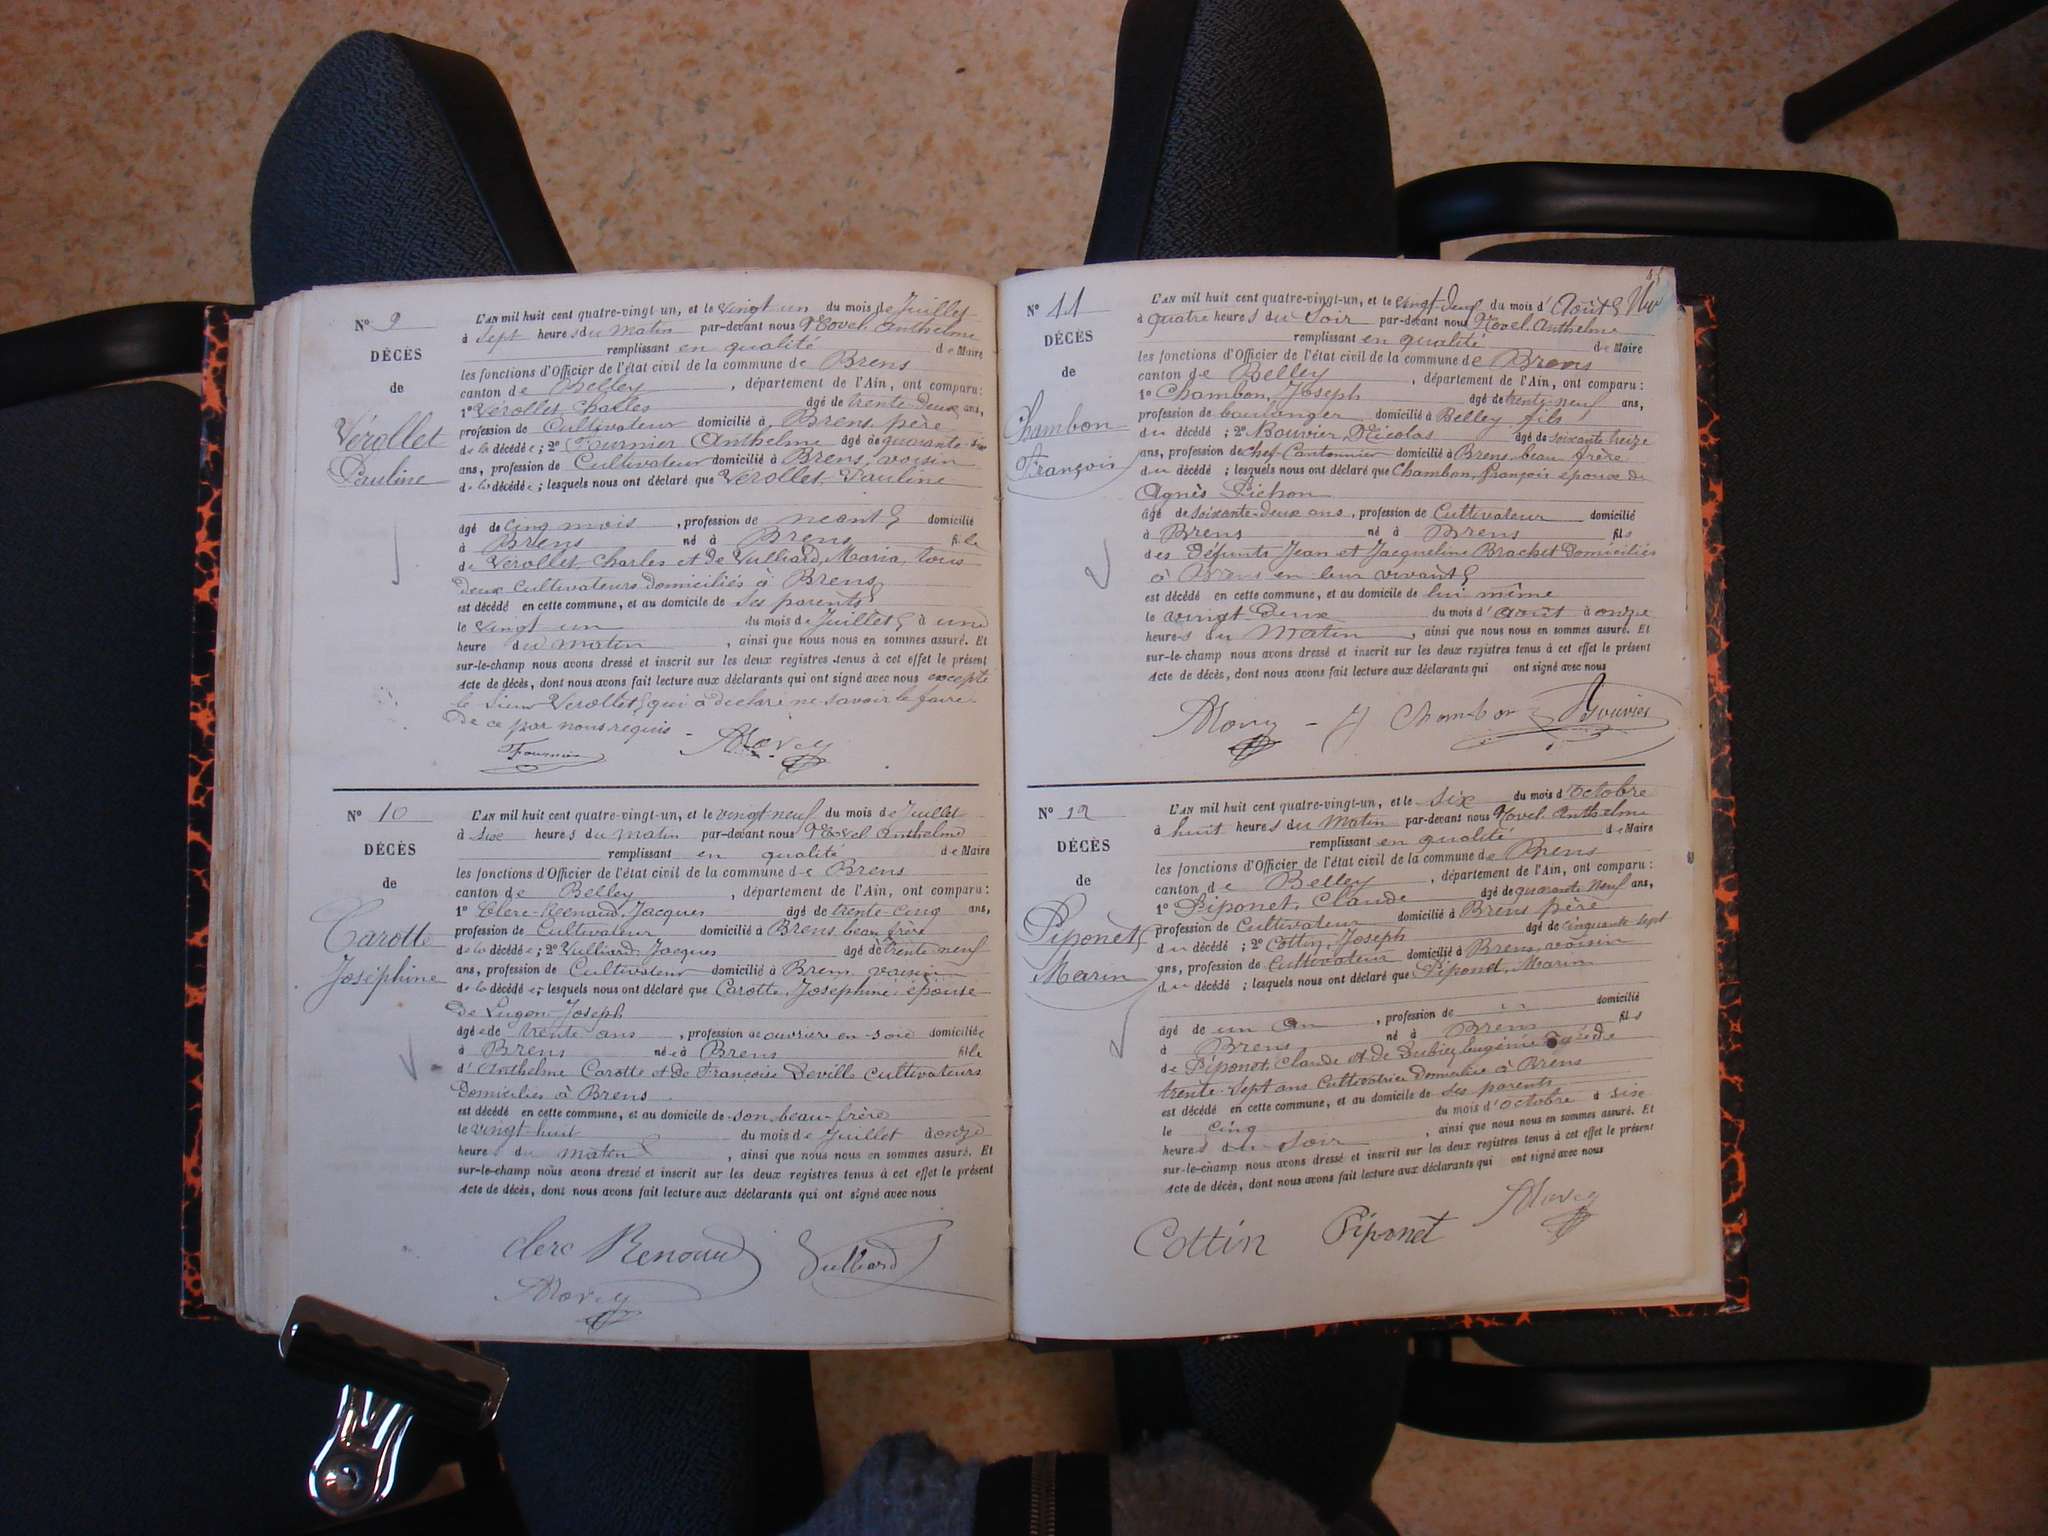 N° 9
DÉCÈS
de
Vérollet
Pauline
L'AN mil huit cent quatre-vingt un, et le vingt un du mois de Juillet
à sept heures du matin par-devant nous Novel Anthelme
remplissant en qualité de Maire
les fonctions d'Officier de l'état civil de la commune de Brens
canton de Belley, département de l'Ain, ont comparu :
1° Verollet, Charles âgé de trente-deux ans,
profession de Cultivateur domicilié à Brens, père
de la décédée ; 2° Fournier Anthelme âgé de quarante-six
ans, profession de Cultivateur domicilié à Brens, voisin
de la décédée ; lesquels nous ont déclaré que Verollet, Pauline
âgé de cinq mois, profession de néant domicilié
à Brens né à Brens fille
de Verollet, Charles et de Vulliard, Maria, tous
deux cultivateurs domiciliés à Brens
est décédé en cette commune, et au domicile de ses parents
le vingt un du mois de Juillet à une
heure du matin, ainsi que nous nous en sommes assuré. Et
sur-le-champ nous avons dressé et inscrit sur les deux registres tenus à cet effet le présent
Acte de décès, dont nous avons fait lecture aux déclarants qui ont signé avec nous excepté
le sieur Verollet qui a déclaré ne savoir le faire
de ce par nous requis -
Fournier Novel
N° 10
DÉCÈS
de
Carotte
Joséphine
L'AN mil huit cent quatre-vingt-un, et le vingt neuf du mois de Juillet
à six heures du matin par-devant nous Novel Anthelme
remplissant en qualité de Maire
les fonctions d'Officier de l'état civil de la commune de Brens
canton de Belley, département de l'Ain, ont comparu :
1° Clerc-Renaud, Jacques âgé de trente-cinq ans,
profession de Cultivateur domicilié à Brens, beau frère
de la décédée ; 2° Vulliard, Jacques âgé de trente-neuf
ans, profession de Cultivateur domicilié à Brens, voisin
de la décédée ; lesquels nous ont déclaré que Carotte, Josephine épouse
de Lugon Joseph
âgée de trente ans, profession de ouvrière en soie domiciliée
à Brens née à Brens fille
d'Anthelme Carotte et de Françoise Deville cultivateurs
domiciliés à Brens
est décédé en cette commune, et au domicile de son beau-frère
le vingt-huit du mois de Juillet à onze
heures du matin, ainsi que nous nous en sommes assuré. Et
sur-le-champ nous avons dressé et inscrit sur les deux registres tenus à cet effet le présent
Acte de décès, dont nous avons fait lecture aux déclarants qui ont signé avec nous
clerc Renaud Vulliard
Novel
N° 11
DÉCÈS
de
Chambon
François
L'AN mil huit cent quatre-vingt-un, et le vingt-deux du mois d'Août
à quatre heures du soir par-devant nous Novel Anthelme
remplissant en qualité de Maire
les fonctions d'Officier de l'état civil de la commune de Brens
canton de Belley, département de l'Ain, ont comparu :
1° Chambon, Joseph âgé de trente-neuf ans,
profession de boulanger domicilié à Belley fils
du décédé ; 2° Bouvier, Nicolas âgé de soixante treize
ans, profession de chef-Cantonnier domicilié à Brens, beau frère
du décédé ; lesquels nous ont déclaré que Chambon, françois époux de
Agnès Pichon
âgé de soixante-deux ans, profession de Cultivateur domicilié
à Brens né à Brens fils
des défunts Jean et Jacqueline Brachet domiciliés
à Brens en leur vivant
est décédé en cette commune, et au domicile de lui même
le vingt deux du mois d'août à onze
heures du Matin, ainsi que nous nous en sommes assuré. Et
sur-le-champ nous avons dressé et inscrit sur les deux registres tenus à cet effet le présent
Acte de décès, dont nous avons fait lecture aux déclarants qui ont signé avec nous
Novel - J Chambon Bouvier
N° 12
DÉCÈS
de
Piponet
Marin
L'AN mil huit cent quatre-vingt-un, et le six du mois d'Octobre
à huit heures du Matin par-devant nous Novel Anthelme
remplissant en qualité de Maire
les fonctions d'Officier de l'état civil de la commune de Brens
canton de Belley, département de l'Ain, ont comparu :
1° Piponet, Claude âgé de quarante neuf ans,
profession de Cultivateur domicilié à Brens père
du décédé ; 2° Cottin, Joseph âgé de cinquante-sept
ans, profession de Cultivateur domicilié à Brens, voisin
du décédé ; lesquels nous ont déclaré que Piponet, Marin
âgé de un an, profession de domicilié
à Brens né à Brens fils
de Piponet, Claude et de Eugénie âgée de
trente-sept ans Cultivatrice domiciliée à Brens
est décédé en cette commune, et au domicile de ses parents
le cinq du mois d'octobre à six
heures du soir, ainsi que nous nous en sommes assuré. Et
sur-le-champ nous avons dressé et inscrit sur les deux registres tenus à cet effet le présent
Acte de décès, dont nous avons fait lecture aux déclarants qui ont signé avec nous
Cottin Piponet Novel